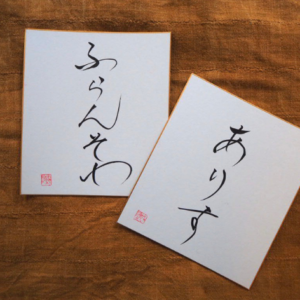 ふらんそわ
ありす